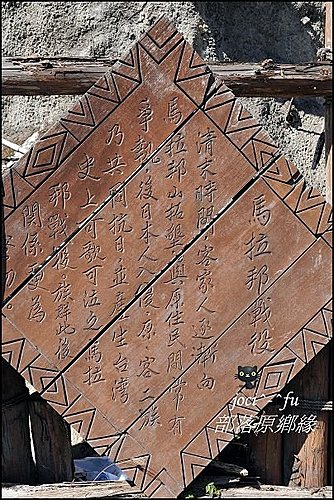 馬拉邦戰役
清末時間，客家人逐漸向
馬拉邦山拓墾，與原住民間常有
爭執，後日本人入侵，原、客二族
乃共同抗日，並產生台灣
史上可歌可泣之馬拉
邦戰役，族群此後
關係更為
密切。
jock fu
部落原鄉緣